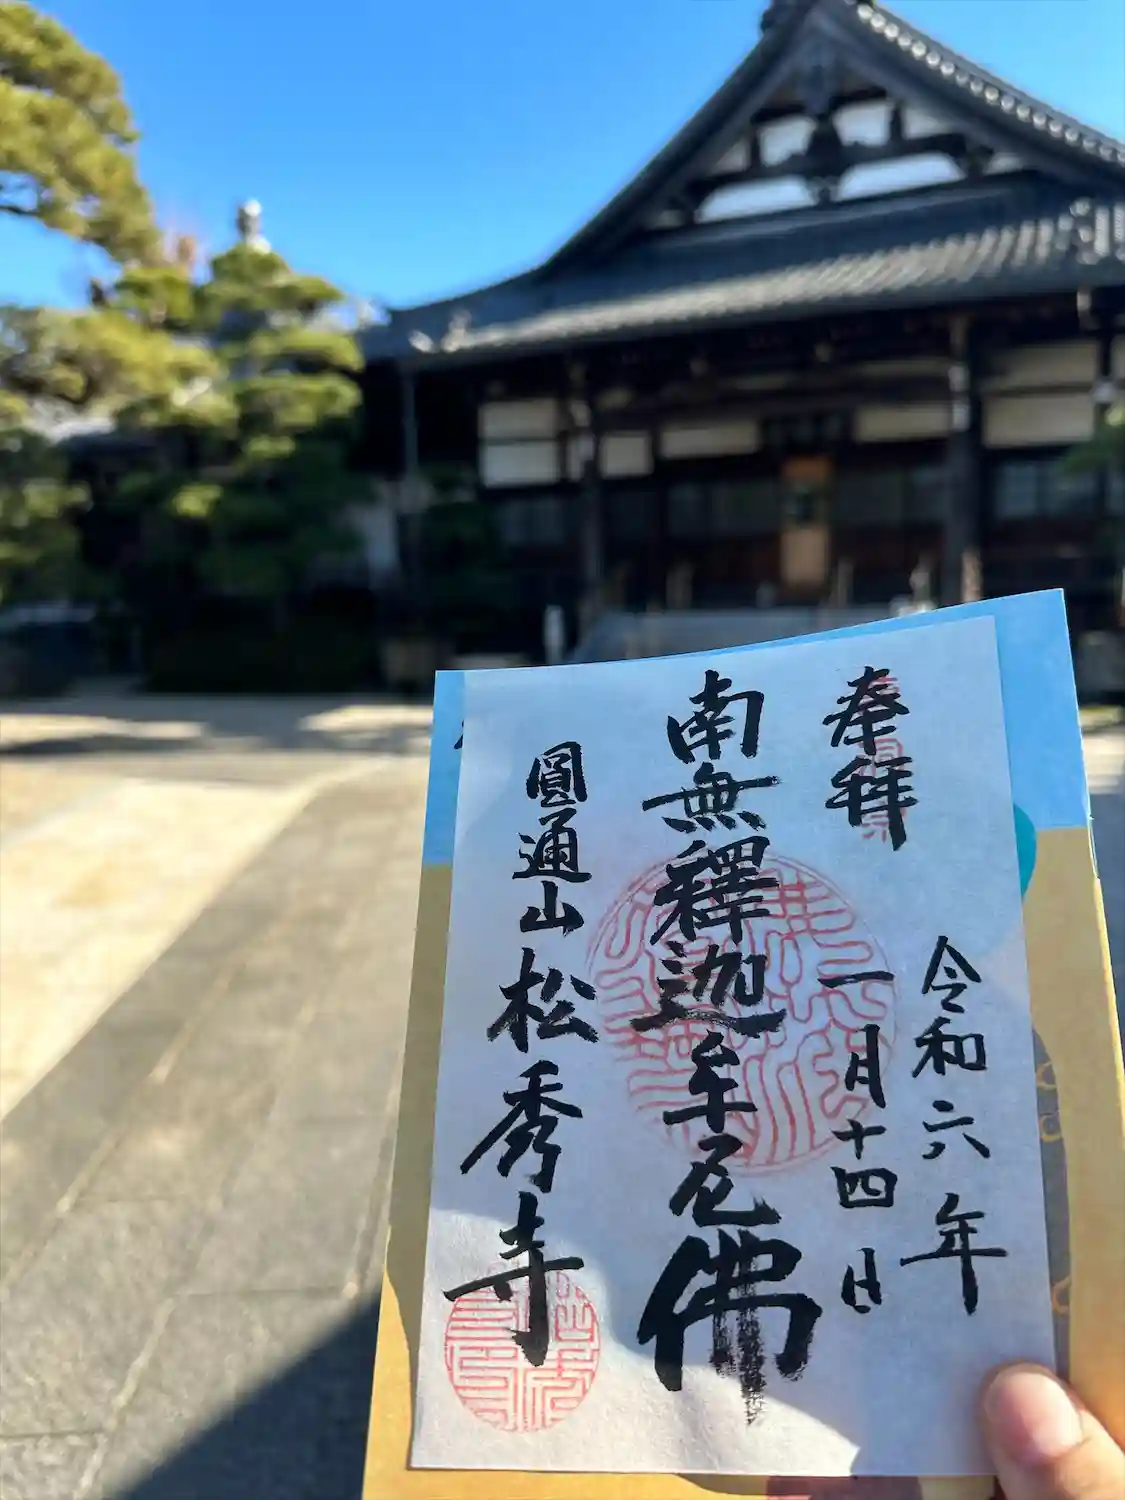 奉拜
令和六年
一月十四日
南無釋迦牟尼佛
圓通山松秀寺